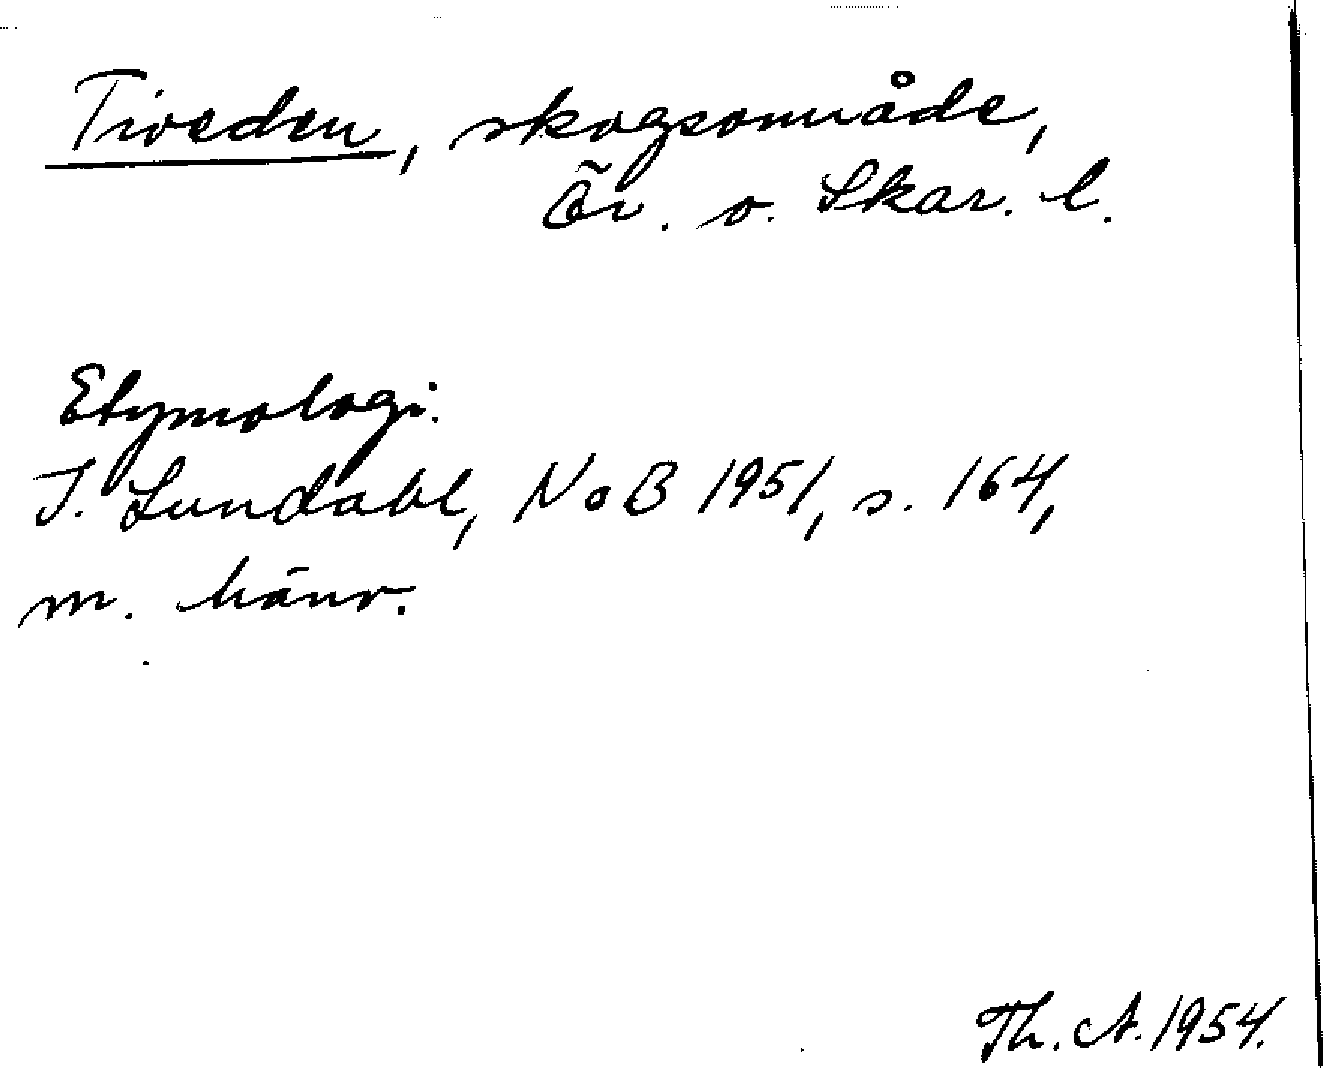 Tiveden, skogsområde,
Ör. o. Skar. l.
Etymologi.
I. Lundahl, NoB 1951, s. 164,
m. hänv.
Th. A. 1954.